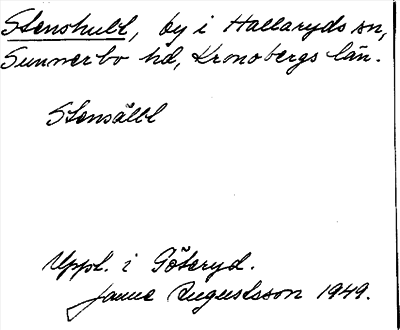 Stenshult, by i Hallaryds sn,
Sunnerbo hd, Kronobergs län.
Stensält
Uppt. i Göteryd.
Janne Augustsson 1949.